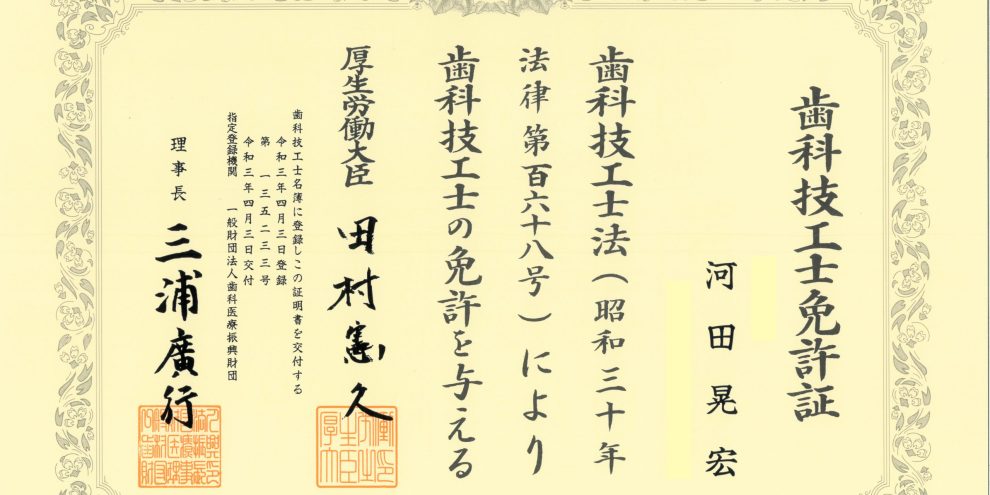 歯科技工士免許証
河田晃宏
歯科技工士法(昭和三十年
法律第百六十八号)により
歯科技工士の免許を与える
厚生労働大臣 田村憲久
歯科技工士名簿に登録しこの証明書を交付する
令和三年四月三日登録
第一三五二三三号
令和三年四月三日交付
指定登録機関 一般財団法人歯科医療振興財団
理事長 三浦廣行